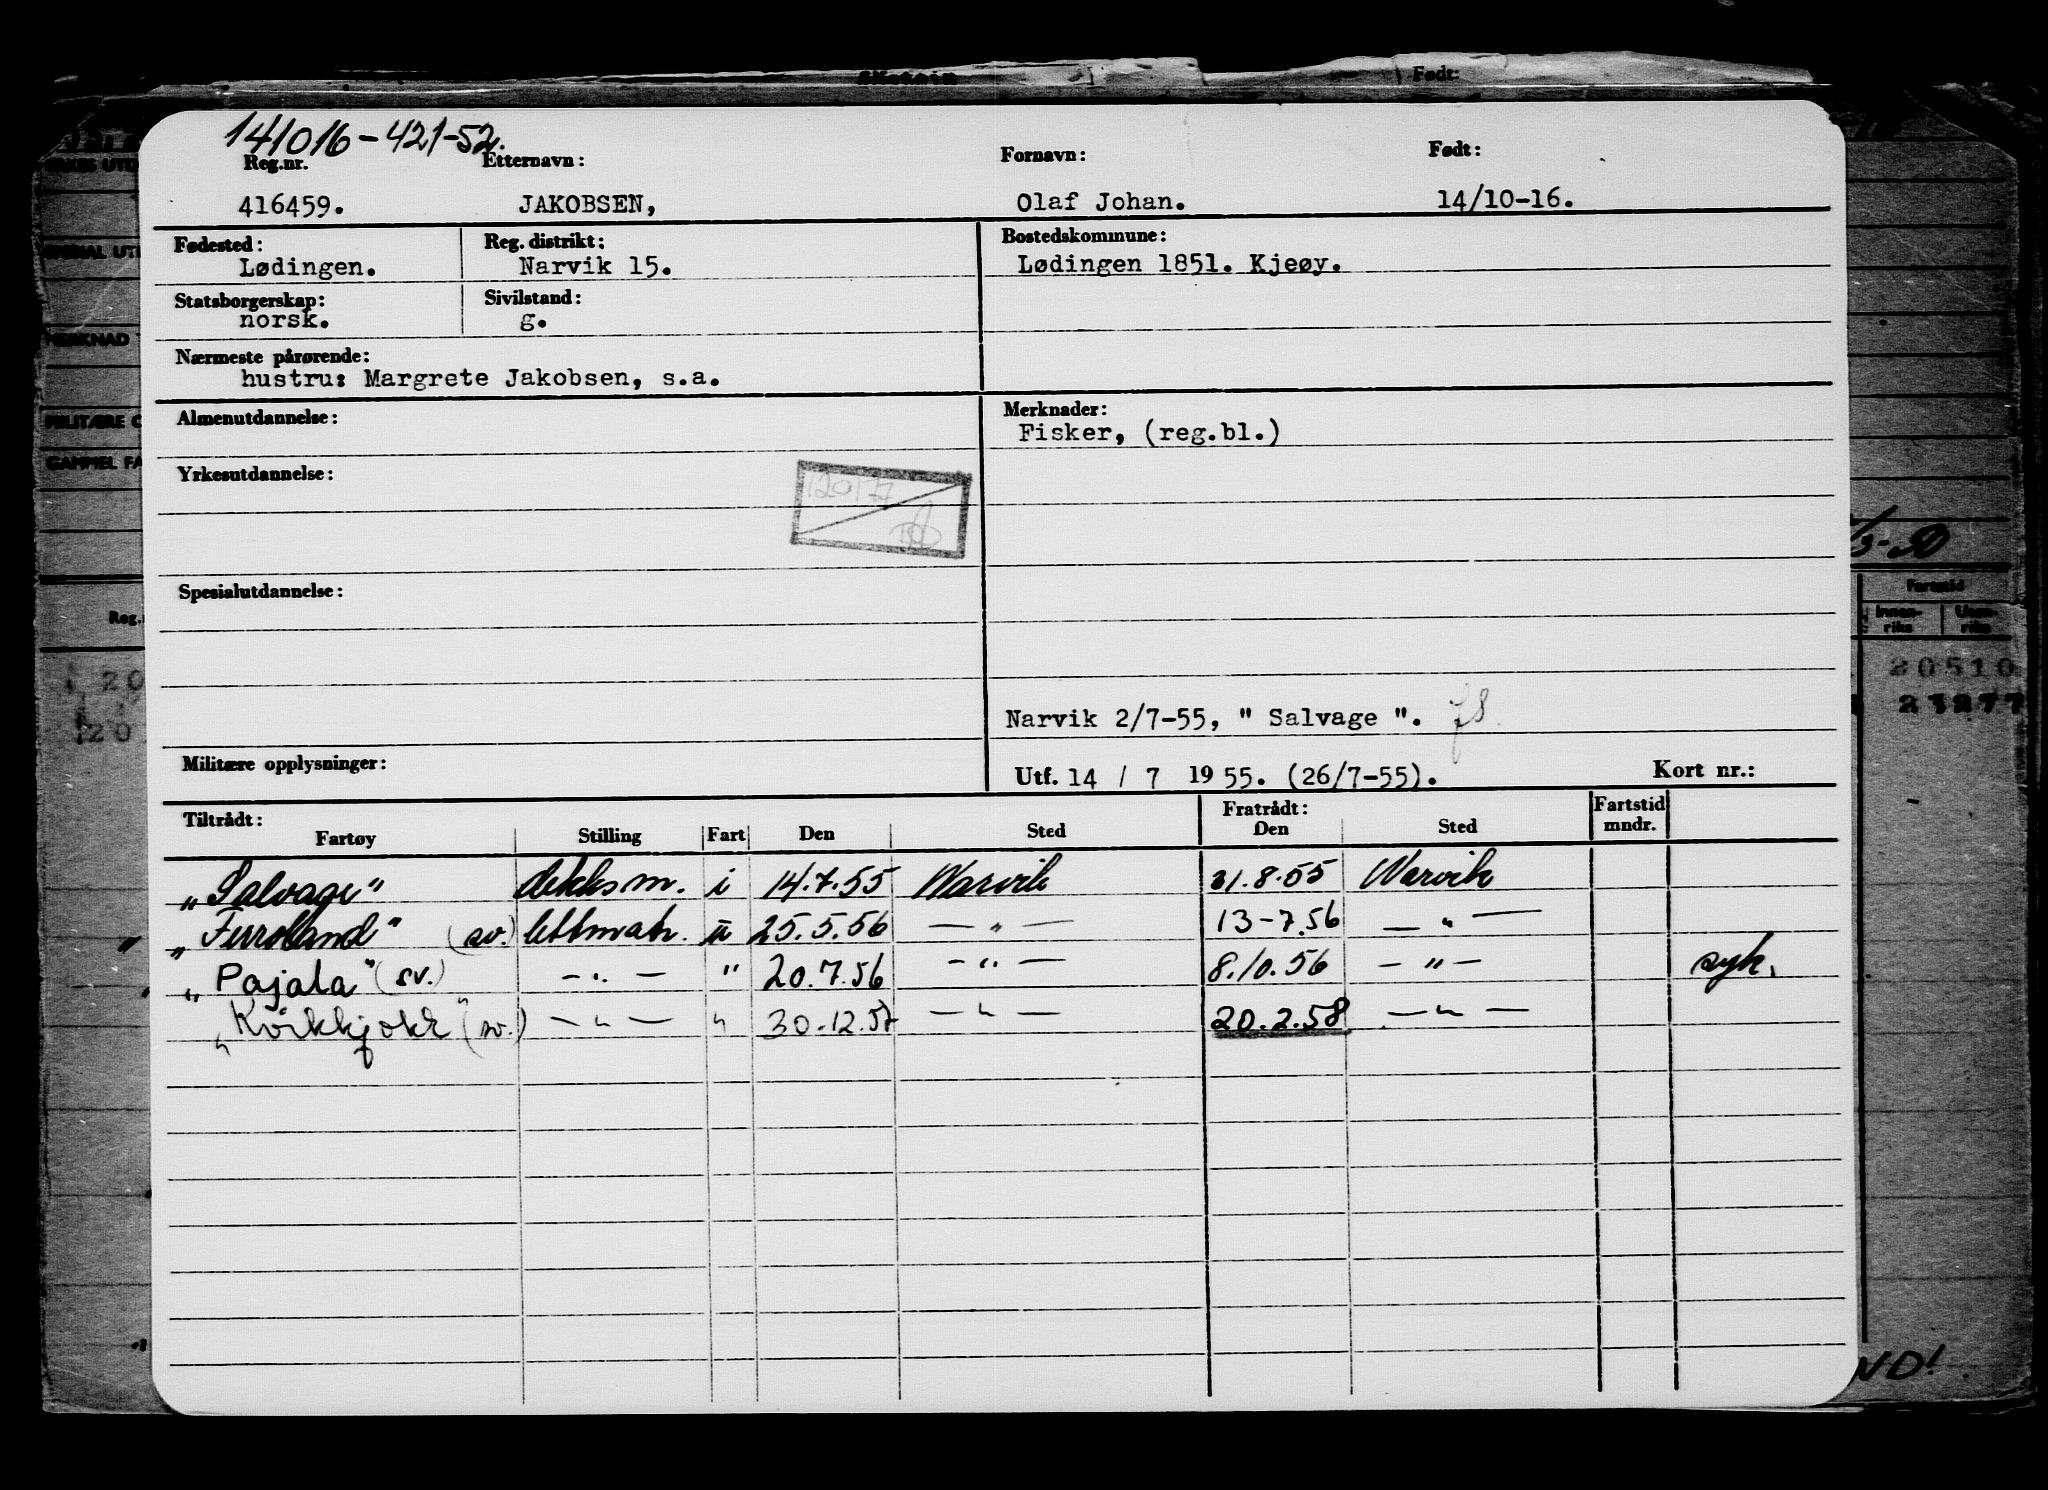 Født:
141016-421-52.
Reg.nr. Etternavn: Fornavn: Født:
416459. JAKOBSEN, Olaf Johan. 14/10-16.
Fødested: Reg. distrikt: Bostedskommune:
Lødingen. Narvik 15. Lødingen 1851. Kjeøy.
Statsborgerskap: Sivilstand:
norsk. g.
Nærmeste pårørende:
hustru: Margrete Jakobsen, s.a.
Almenutdannelse: Merknader:
Fisker, (reg.bl.)
Yrkesutdannelse:
120177
Spesialutdannelse:
Narvik 2/7-55, " Salvage ".
Militære opplysninger: Utf. 14 / 7 1955. (26/7-55). Kort nr.:
Tiltrådt: Fratrådt: Fartstid
Fartøy Stilling Fart Den Sted Den Sted mndr.
„Salvage" dekksm. i 14.7.55 Narvik 31.8.55 Narvik
„Ferroland" (sv.) lettmatr. u 25.5.56 — " — 13-7.56 — " —
„Pajala" (sv.) — " — " 20.7.56 — " — 8.10.56 — " — syk.
„Kvikkjokk" (sv.) — " — " 30.12.57 — " — 20.2.58 — " —
Fartstid
Innen-
riks
Uten-
riks
20510